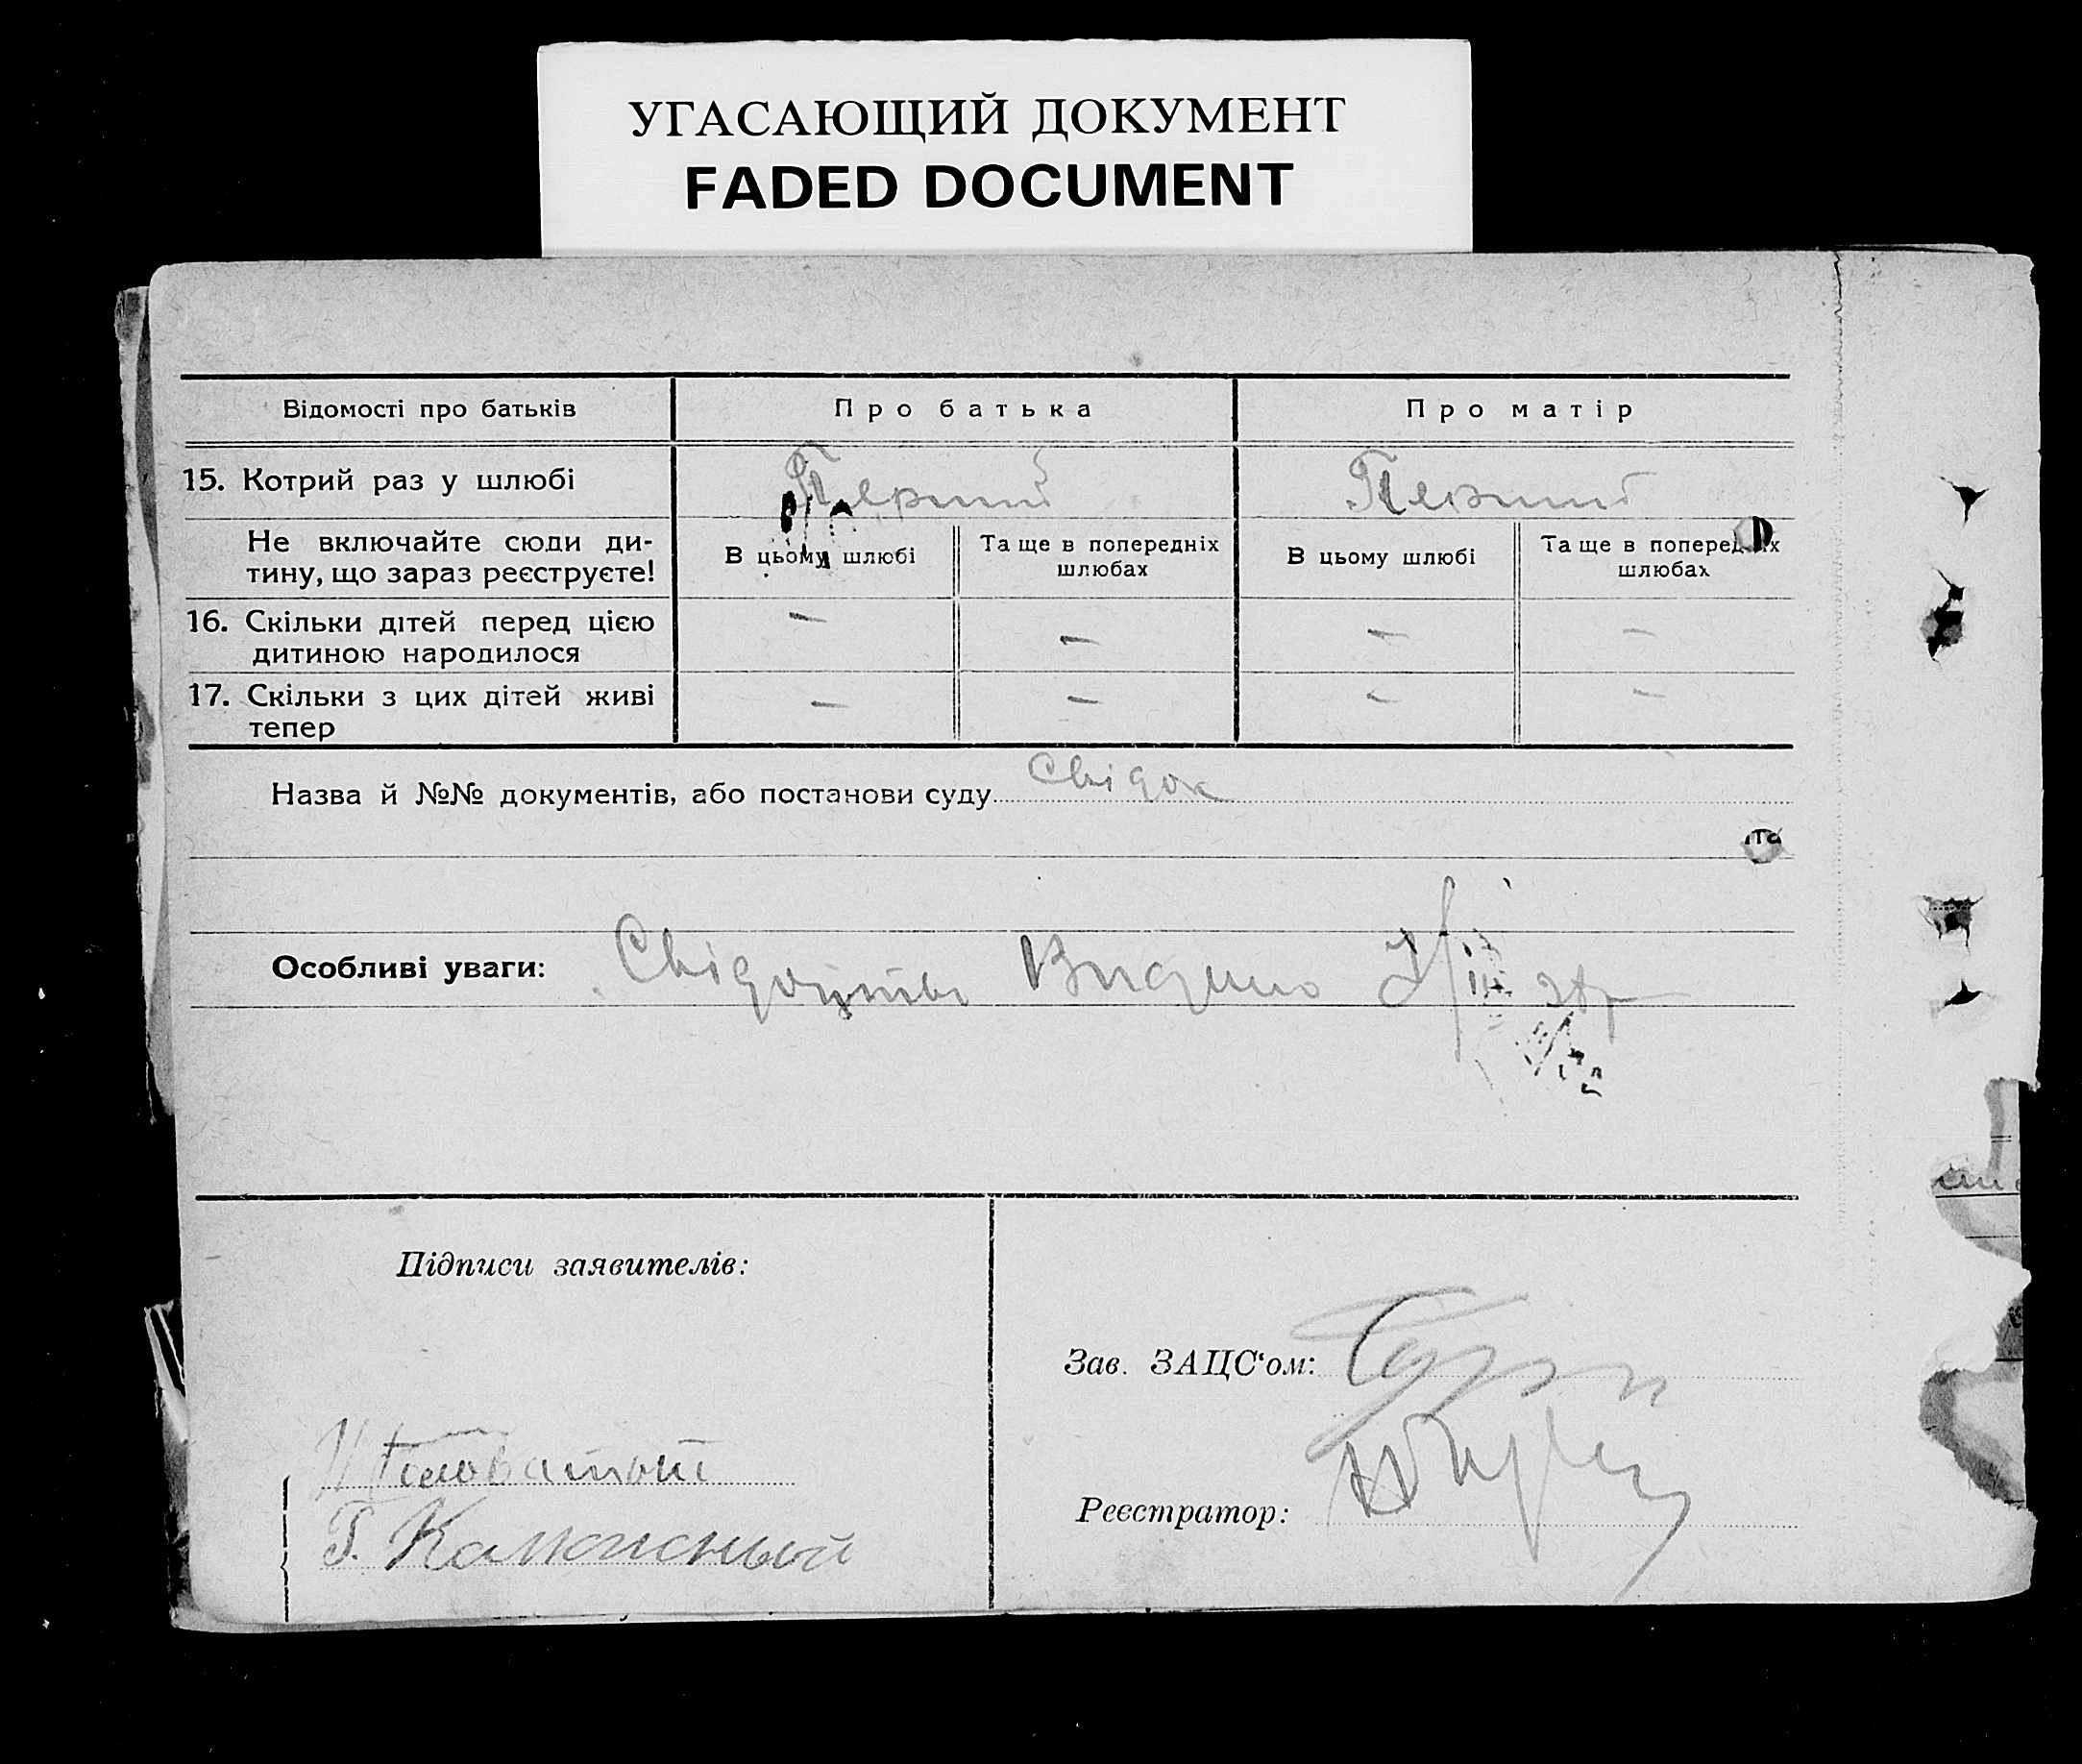 УГАСАЮЩИЙ ДОКУМЕНТ
FADED DOCUMENT
Відомості про батьків
Про батька
Про матір
15. Котрий раз у шлюбі
Перший
Перший
Не включайте сюди ди-
тину, що зараз реєструєте!
В цьому шлюбі
Та ще в попередніх
шлюбах
В цьому шлюбі
Та ще в попередніх
шлюбах
16. Скільки дітей перед цією
дитиною народилося
— — — —
17. Скільки з цих дітей живі
тепер
— — — —
Назва й №№ документів, або постанови суду Свідок
та
Особливі уваги: Свідоцтво Видано
Підписи заявителів:
Зав. ЗАЦС‘ом:
Головатый
Реєстратор:
Г. Калюжный